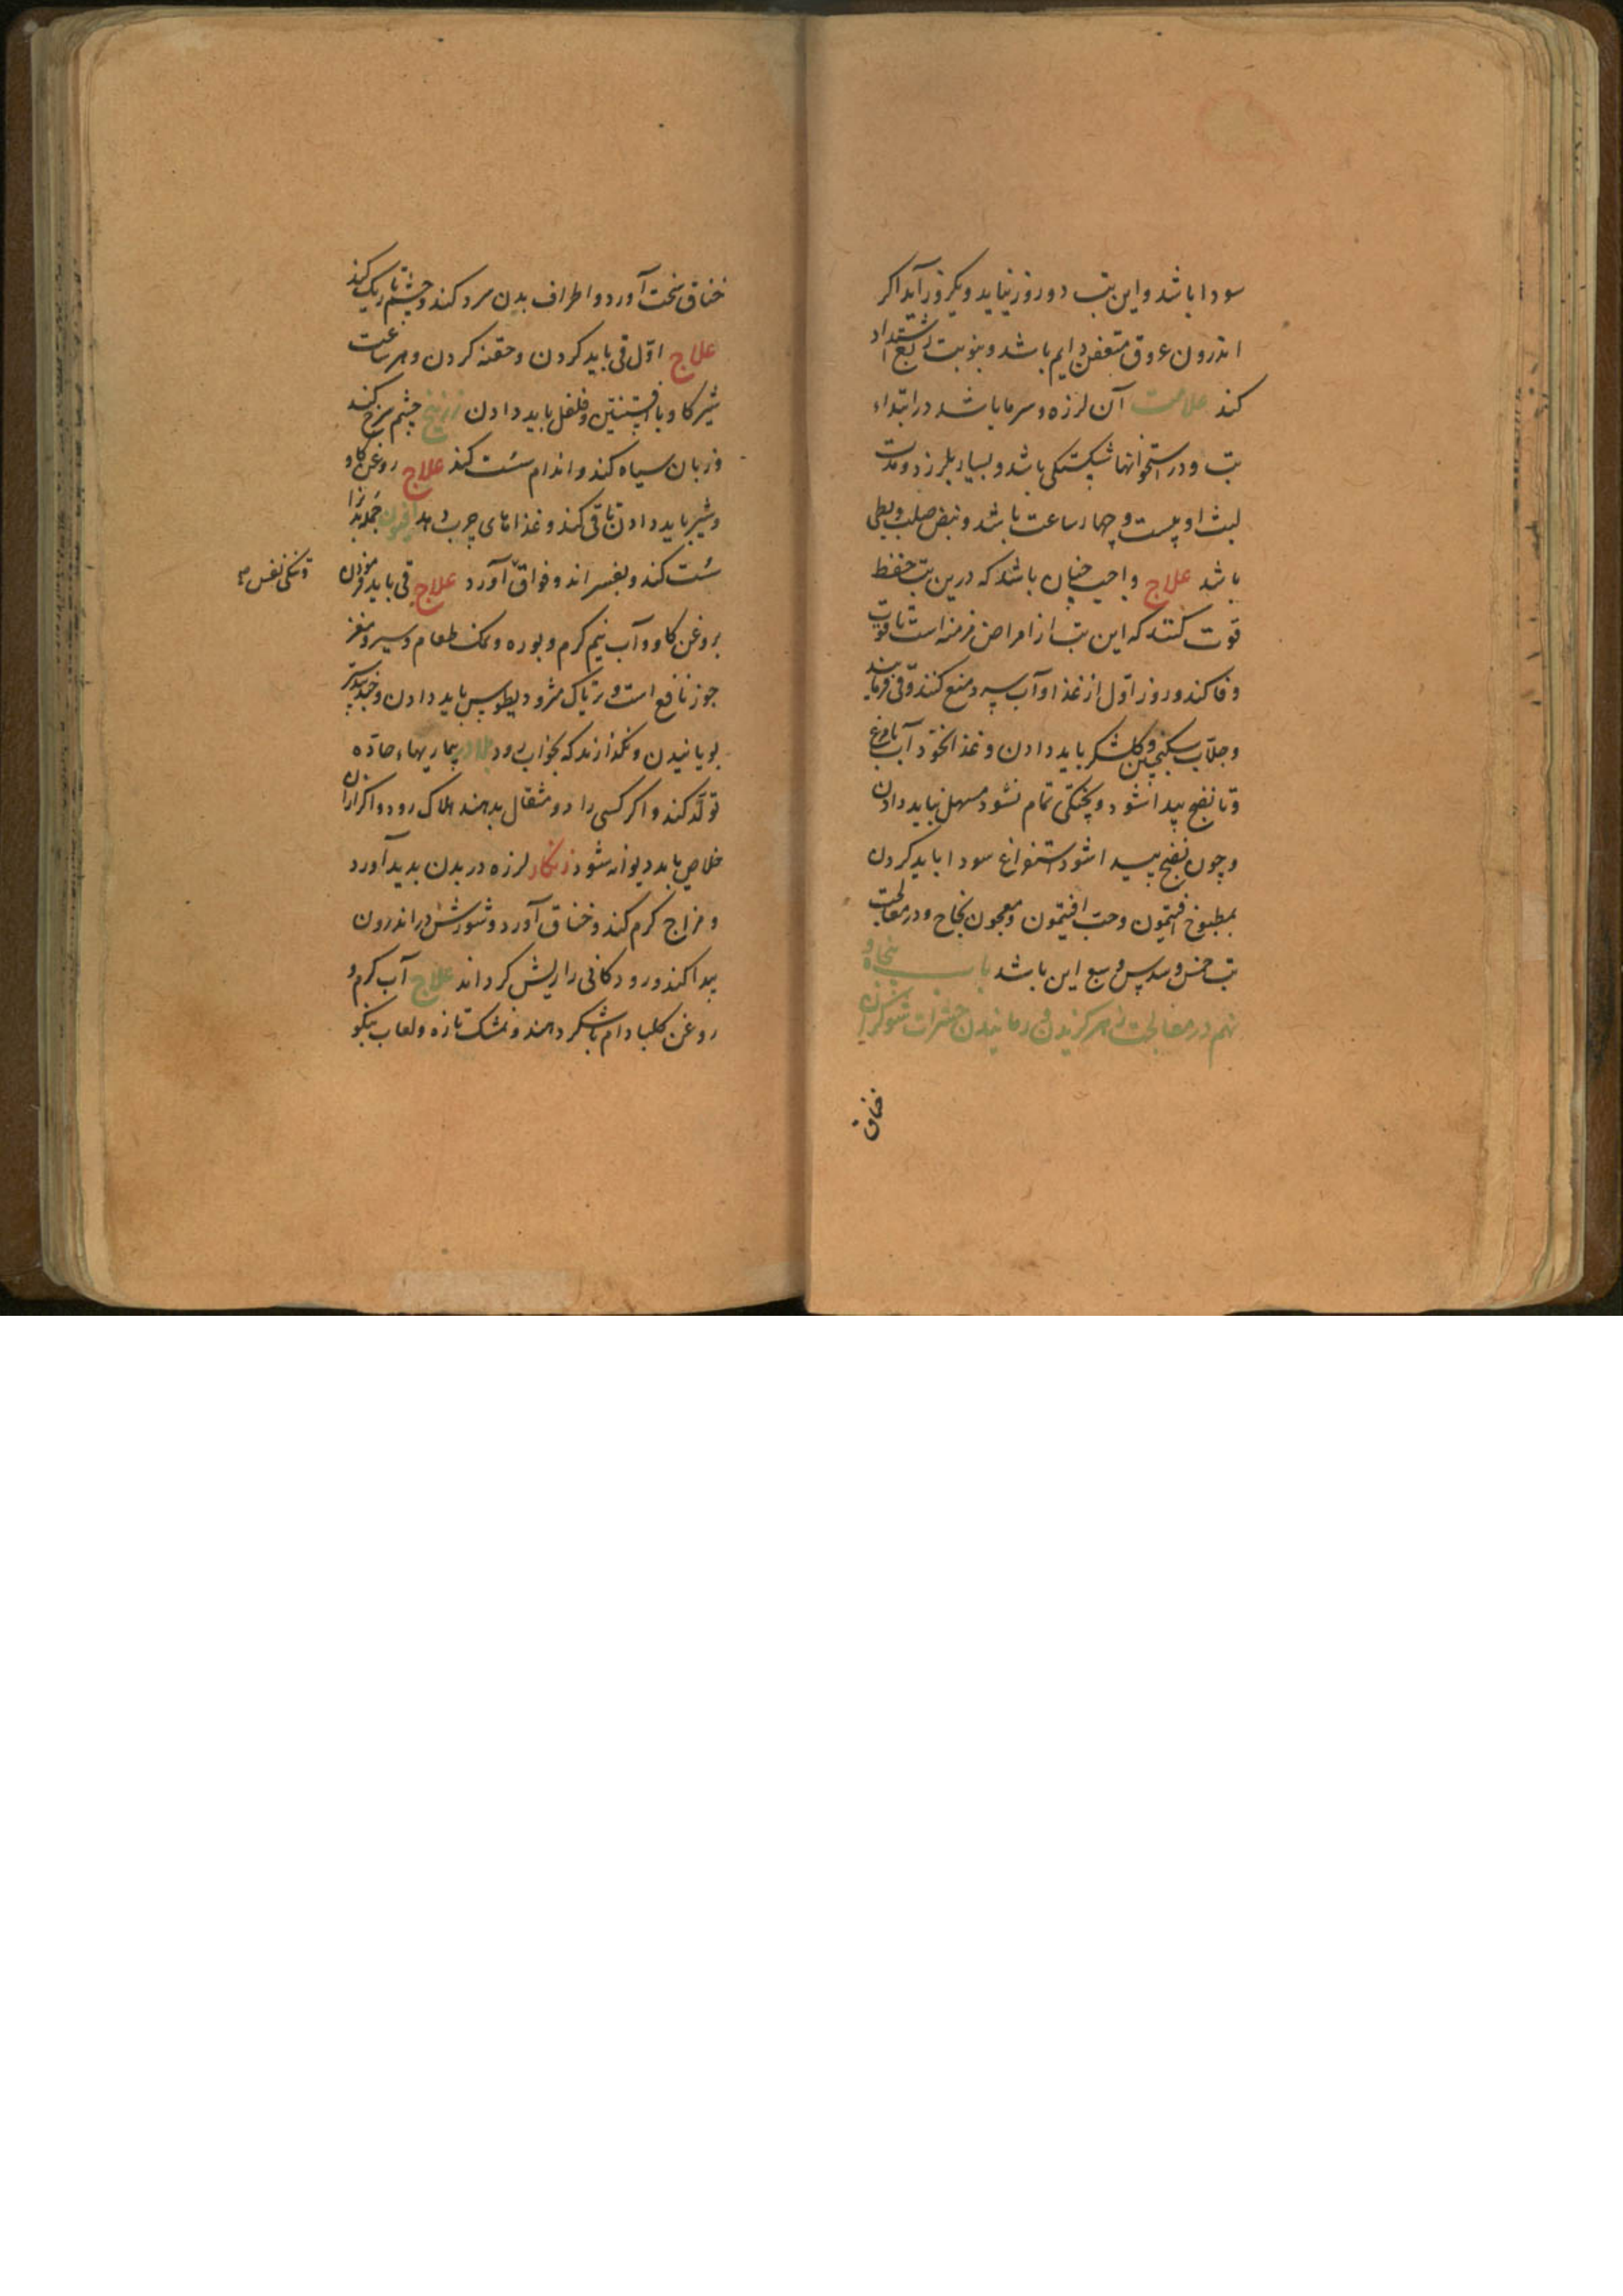 سودا باشد و این تب دو روز نیاید و یکروز آید اکر
اندرون عروق متعفن دایم باشد و بنوبت ربع اشتداد
کند علامت آن لرزه و سرما باشد در ابتداء
تب و در استخوانها شکستکی باشد و بسیار بلرزد و مدت
لبث او بیست و چهار ساعت باشد و نبض صلب و بطی
باشد علاج واجب چنان باشد که درین تب حفظ
قوت کنند که این تب از امراض مزمنه است تا قوت
وفا کند و روز اول از غذا و آب سرد منع کنند و قی فرمایند
و جلاب سکنجبین و کلشکر باید دادن و غذا نخود آب با مرغ
و تا نضج پیدا شود و پختکی تمام نشود مسهل نباید دادن
و چون نضج پیدا شود استفراغ سودا باید کردن
بمطبوخ افتیمون و حب افتیمون و معجون نجاح و در معالجت
تب خمس و سدس و سبع این باشد باب پنجاه و
نهم در معالجت زهر کزیدن و رمانیدن حشرات شوکران
خناق
خناق سخت آورد و اطراف بدن سرد کند و چشم تاریک کند
علاج اوّل قی باید کردن و حقنه کردن و هر ساعت
شیر کاو با افسنتین و فلفل باید دادن زرنیخ چشم سرخ کند
و زبان سیاه کند و اندام سُست کند علاج روغن کاو
و شیر باید دادن تا قی کند و غذاهای چرب دهد افیون جمله بدن را
سُست کند و بفسراند و فواق آورد علاج قی باید فرمودن
و تنکی نفس
بروغن کاو و آب نیم کرم و بوره و نمک طعام و سیر و مغز
جوز نافع است و تریاک مثرودیطوس باید دادن و جندبیدستر
بویانیدن و نکذارند که بخواب رود بلادر بیماریهاء حادّه
تولّد کند و اکر کسی را دو مثقال بدهند هلاک رود و اکر ازان
خلاص یابد دیوانه شود زنکار لرزه در بدن بدید آورد
و مزاج کرم کند و خناق آورد و شورش در اندرون
پیدا کند و رودکانی را ریش کرداند علاج آب کرم و
روغن کل بادام با شکر دهند و تمشک تازه و لعاب بنکو